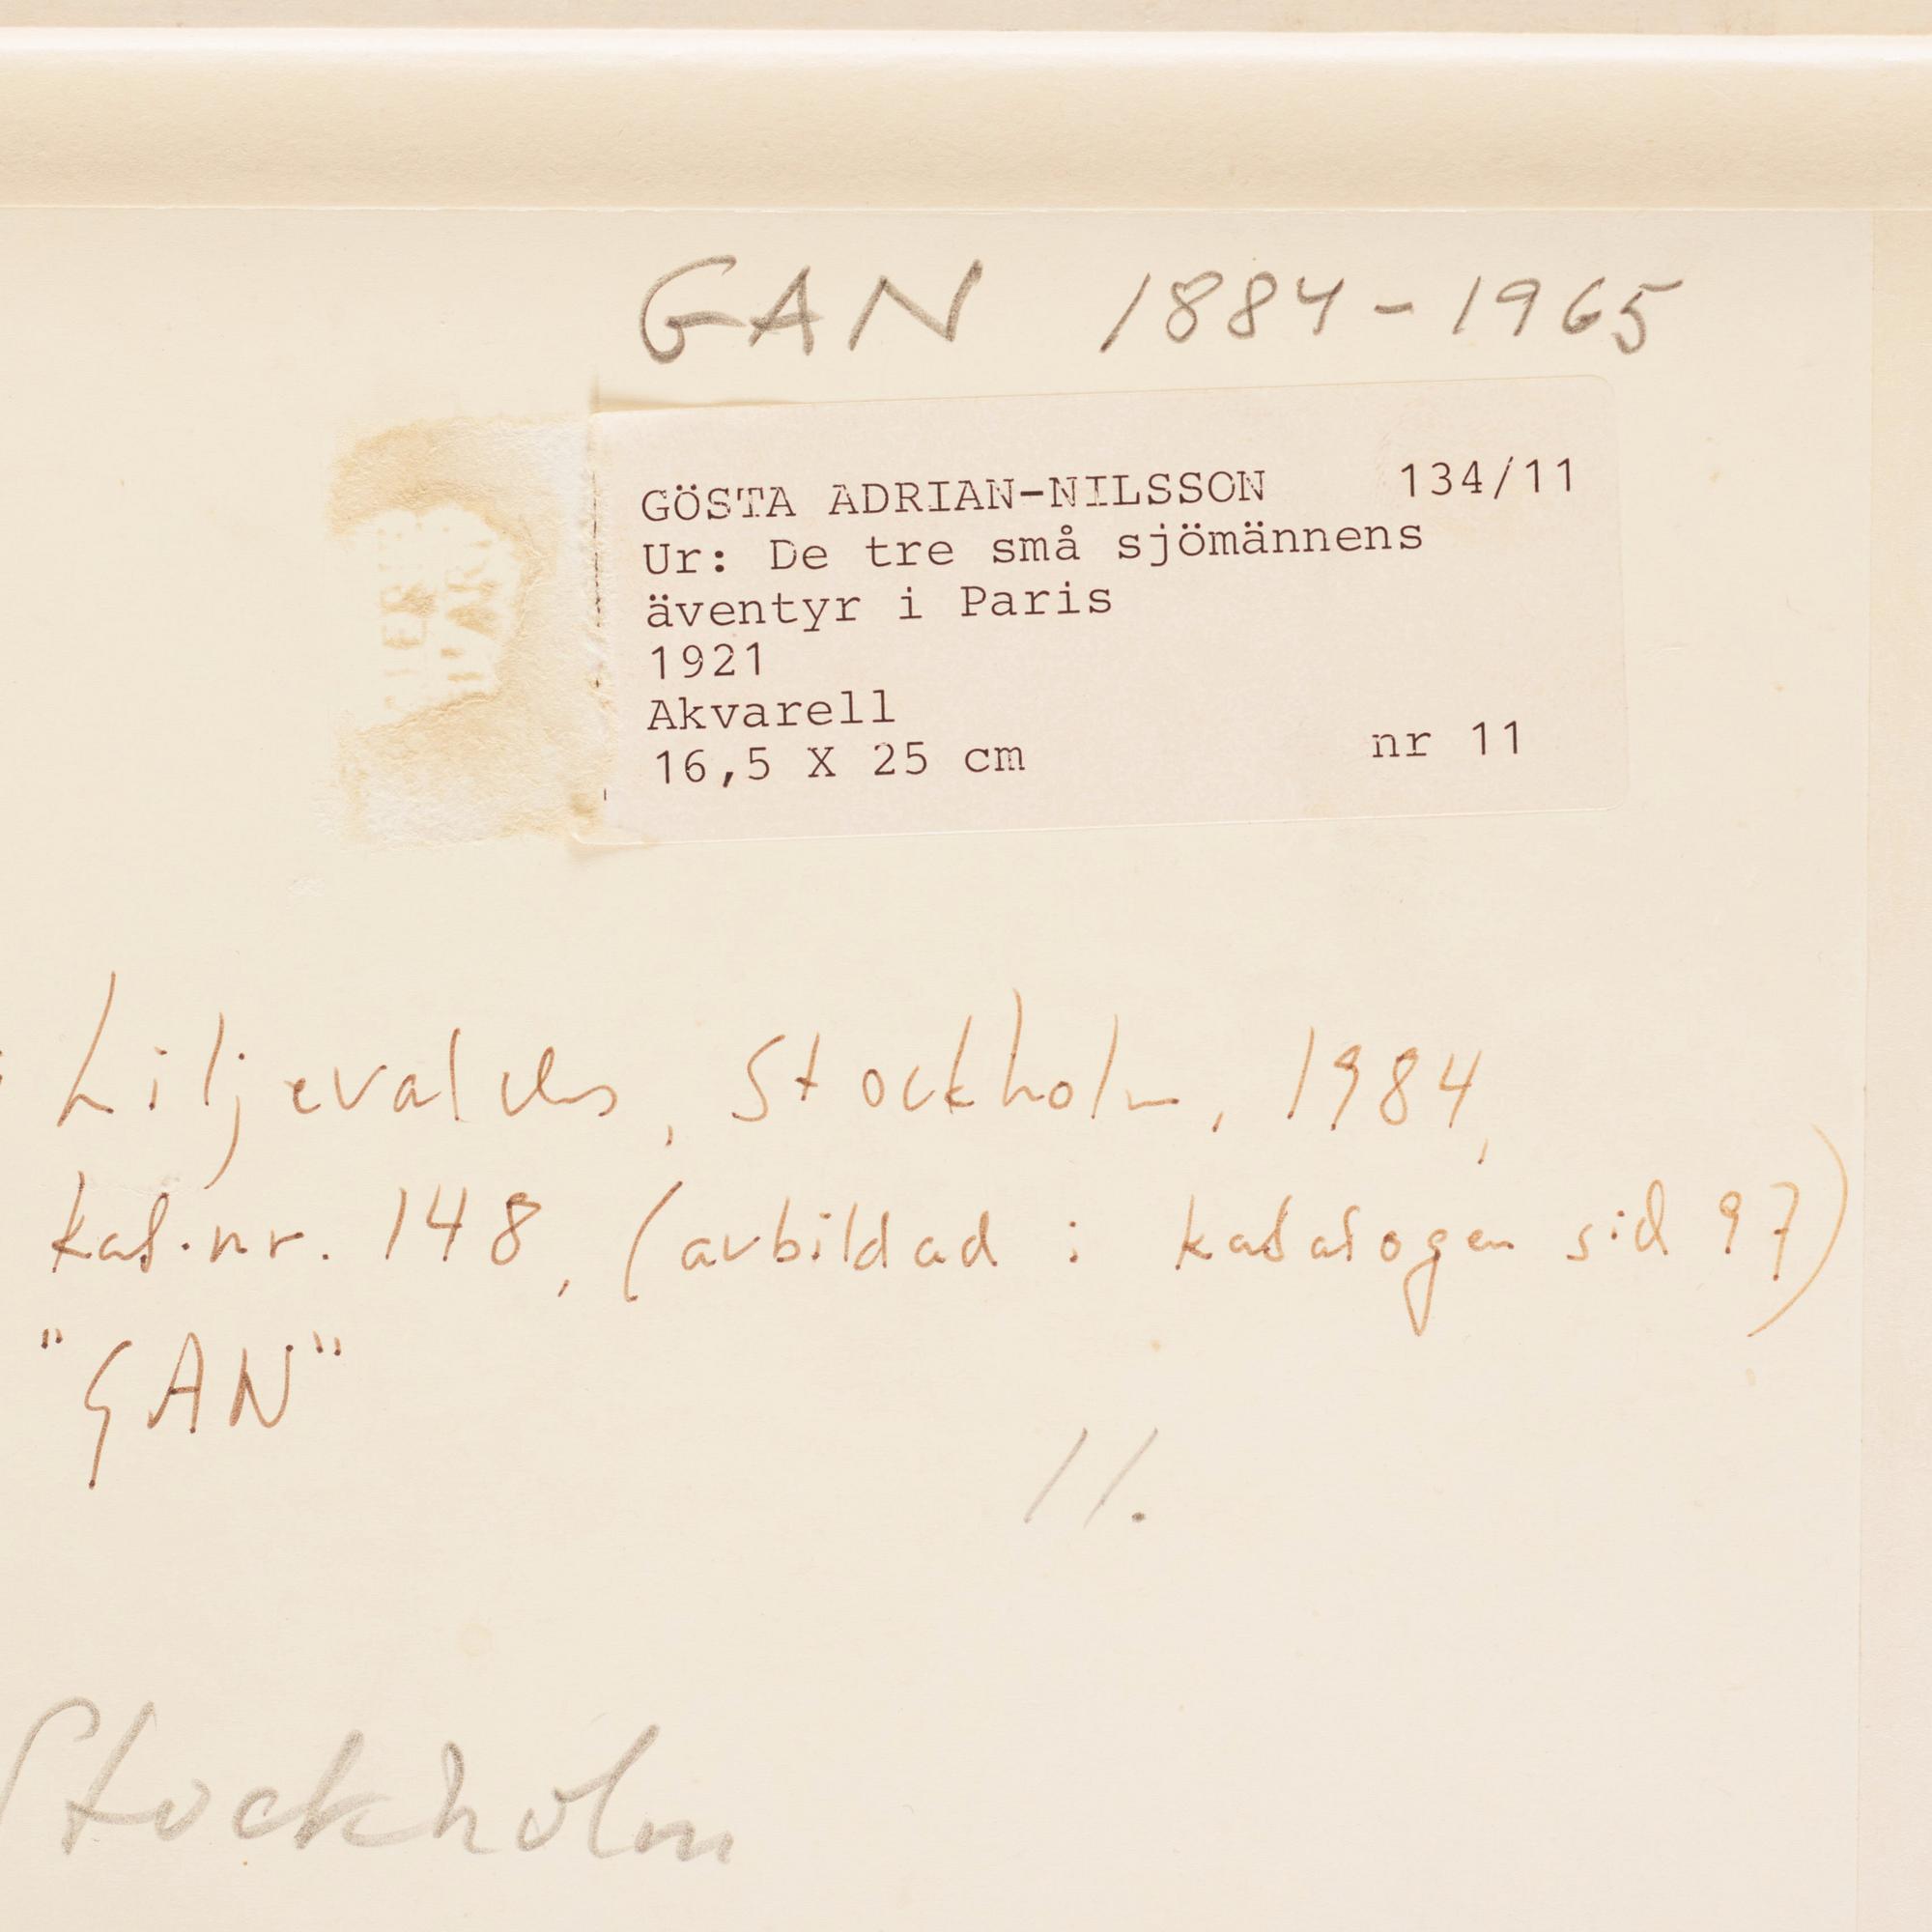 GAN 1884-1965
GÖSTA ADRIAN-NILSSON 134/11
Ur: De tre små sjömännens
äventyr i Paris
1921
Akvarell
16,5 X 25 cm nr 11
: Liljevalchs, Stockholm, 1984,
kat.nr. 148, (avbildad i katalogen sid 97)
"GAN"
11.
Stockholm